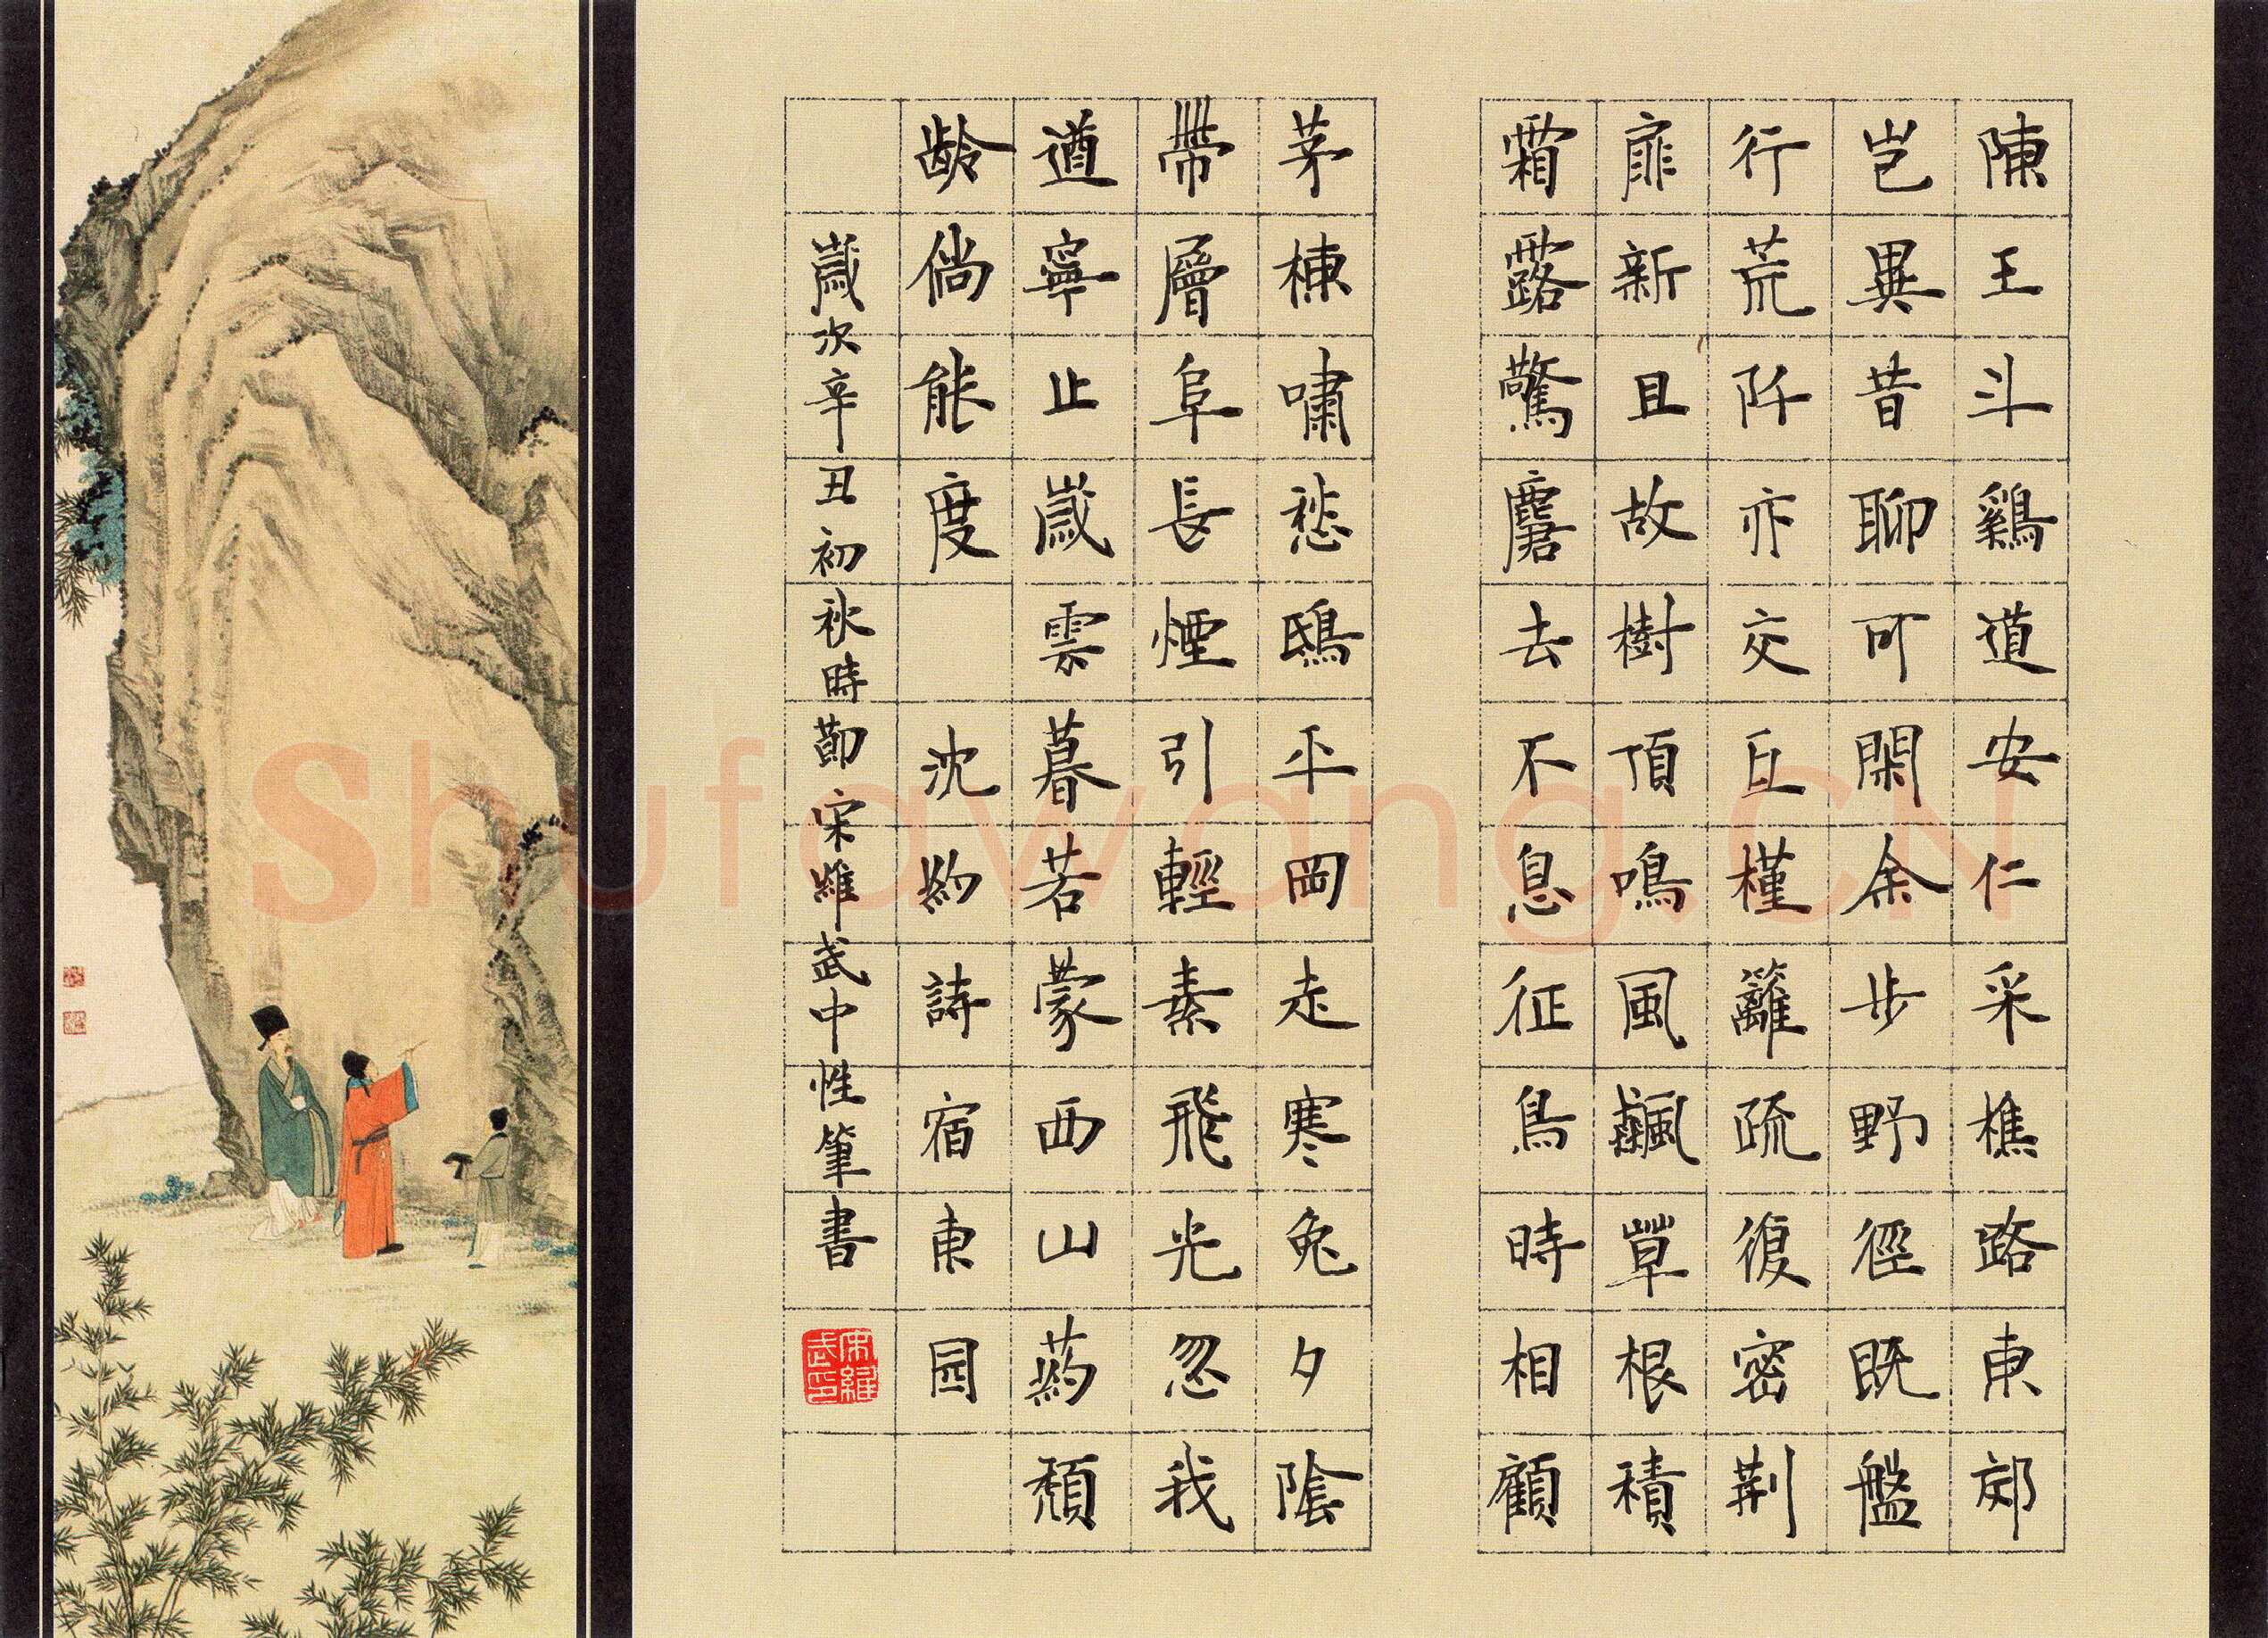 陳王斗鷄道安仁采樵路東郊
岂異昔聊可閑余步野徑既盤
行荒阡亦交丘槿籬疏復密荆
扉新且故樹頂鳴風飆草根積
霜露驚麏去不息征鳥時相顧
茅棟嘯愁鴟平岡走寒兔夕陰
帶層阜長煙引輕素飛光忽我
遒寧止歲雲暮若蒙西山葯頹
龄倘能度 沈約詩宿東园
歲次辛丑初秋時節宋維武中性筆書
宋維武印
Shufawang.CN